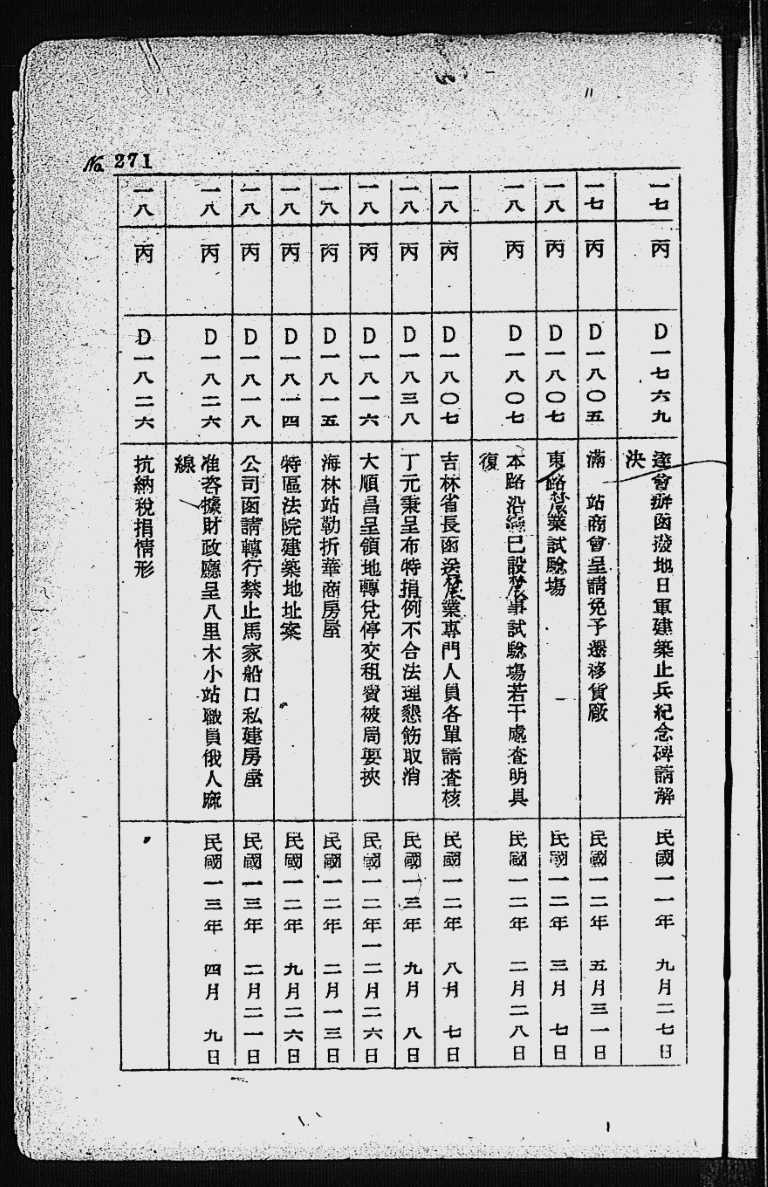 No. 271
一七 丙 D一七六九 達會辦函撥地日軍建築止兵紀念碑請解決 民國一一年 九月二七日
一七 丙 D一八〇五 滿 站商會呈請免予遷移貨廠 民國一二年 五月三一日
一八 丙 D一八〇七 東路農業試驗場 民國一二年 三月 七日
一八 丙 D一八〇七 本路沿綫已設農事試驗場若干處查明具復 民國一二年 二月二八日
一八 丙 D一八〇七 吉林省長函送農業專門人員各單請查核 民國一二年 八月 七日
一八 丙 D一八三八 丁元秉呈布特捐例不合法理懇飭取消 民國一三年 九月 八日
一八 丙 D一八一六 大順昌呈領地轉兌停交租貲被局要挾 民國一二年一二月二六日
一八 丙 D一八一五 海林站勒折華商房屋 民國一二年 二月一三日
一八 丙 D一八一四 特區法院建築地址案 民國一二年 九月二六日
一八 丙 D一八一八 公司函請轉行禁止馬家船口私建房屋 民國一三年 二月二一日
一八 丙 D一八二六 准咨據財政廳呈八里木小站職員俄人麻線 民國一三年 四月 九日
一八 丙 D一八二六 抗納稅捐情形 〃